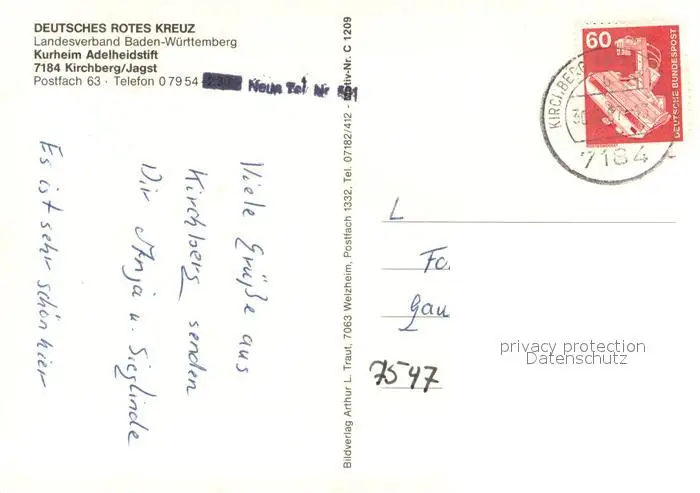 DEUTSCHES ROTES KREUZ
Landesverband Baden-Württemberg
Kurheim Adelheidstift
7184 Kirchberg/Jagst
Postfach 63 · Telefon 0 79 54
Neue Tel. Nr.
Viele Grüße aus
Kirchberg senden
Dir Anja u. Sieglinde
Es ist sehr schön hier
Bildverlag Arthur L. Traut, 7063 Welzheim, Postfach 1332, Tel. 07182/412 - Motiv-Nr. C 1209
60
DEUTSCHE BUNDESPOST
KIRCHBERG
7184
L
Fa.
Gau
7547
privacy protection
Datenschutz